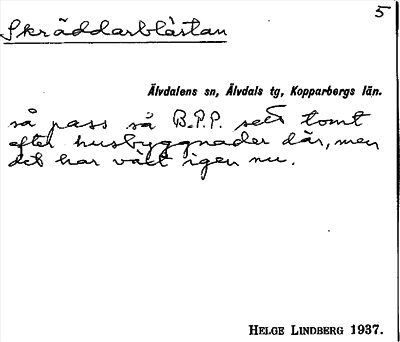 5
Skräddarblästan
Älvdalens sn, Älvdals tg, Kopparbergs län.
så pass så B.P.P. sett tomt
efter husbyggnader där, men
det har växt igen nu.
HELGE LINDBERG 1937.